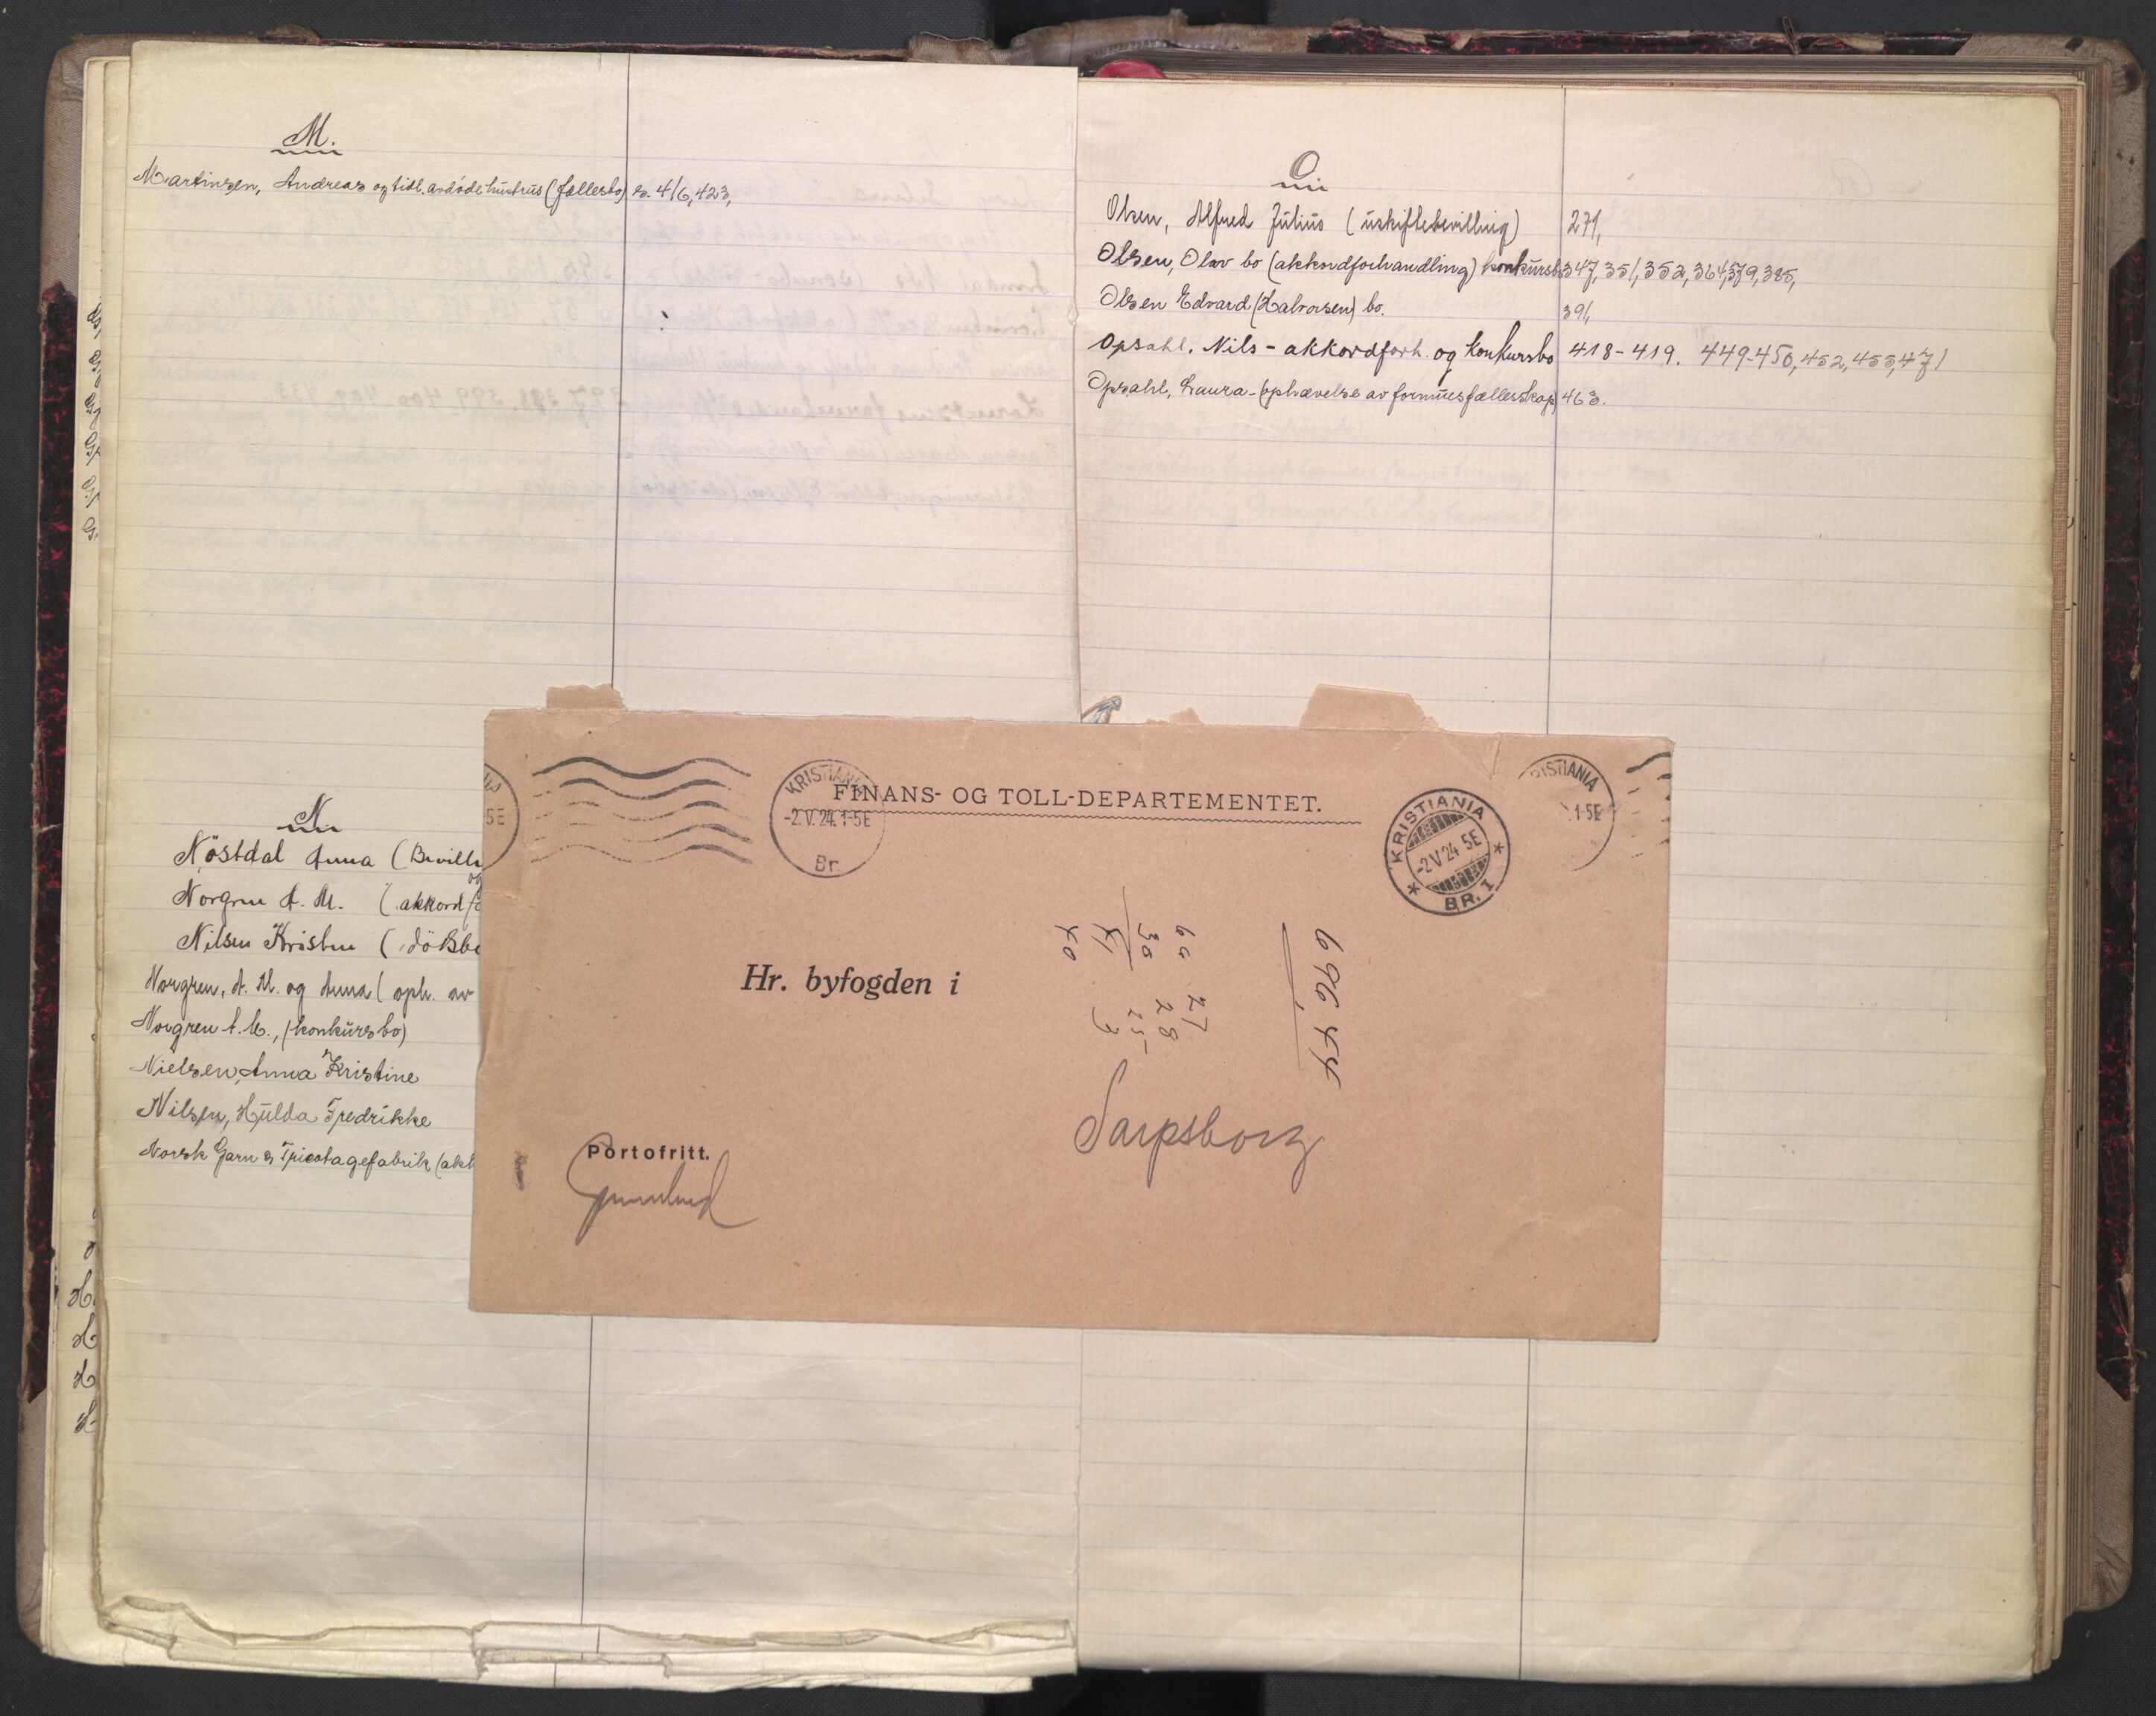 M.
Martinsen, Andreas og tidl. avdöde hustrus (fællesbo) s. 416, 423,
N.
Nöstdal Anna (Bevill
Norgren A. M. (akkord
Nilsen Kristen (dödsbo
Norgren, A. M. og Anna (oph. av
Norgren A. M., (konkursbo)
Nielsen, Anna Kristine
Nilsen, Hulda Fredrikke
Norsk Garn & Tricotagefabrik (akk
O
Olsen, Alfred Julius (uskiftebevilling) 271,
Olsen, Olav bo (akkordforhandling) konkursb 347, 351, 352, 364, 379, 385,
Olsen Edvard (Halvorsen) bo. 391,
Opsahl, Nils - akkordforh. og konkursbo 418-419. 449-450, 452, 455, 471
Opsahl, Laura - (ophævelse av formuesfællesskap) 463.
KRISTIANIA
-2.V.24.1-5E
Br.
FINANS- OG TOLL-DEPARTEMENTET.
KRISTIANIA
-2.V.24 5E
BR. 1
RISTIANIA
1-5E
5E
Hr. byfogden i
Sarpsborg
Portofritt.
696
60 27
30 28